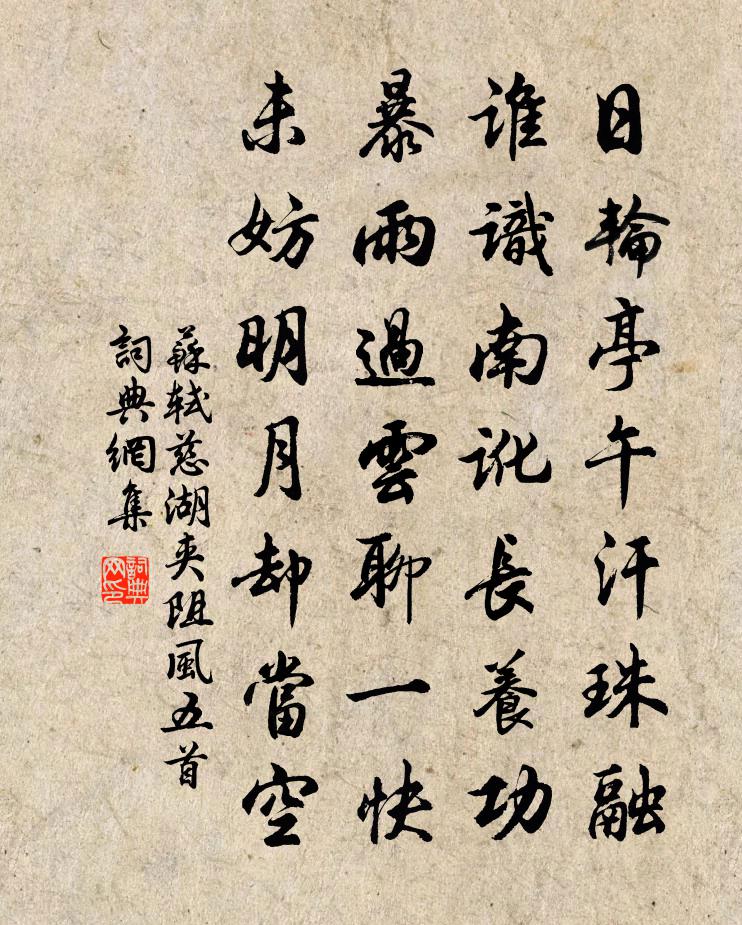 日輪亭午汗珠融
誰識南訛長養功
暴雨過雲聊一快
未妨明月却當空
蘇軾慈湖夾阻風五首
詞典網集
詞典網印